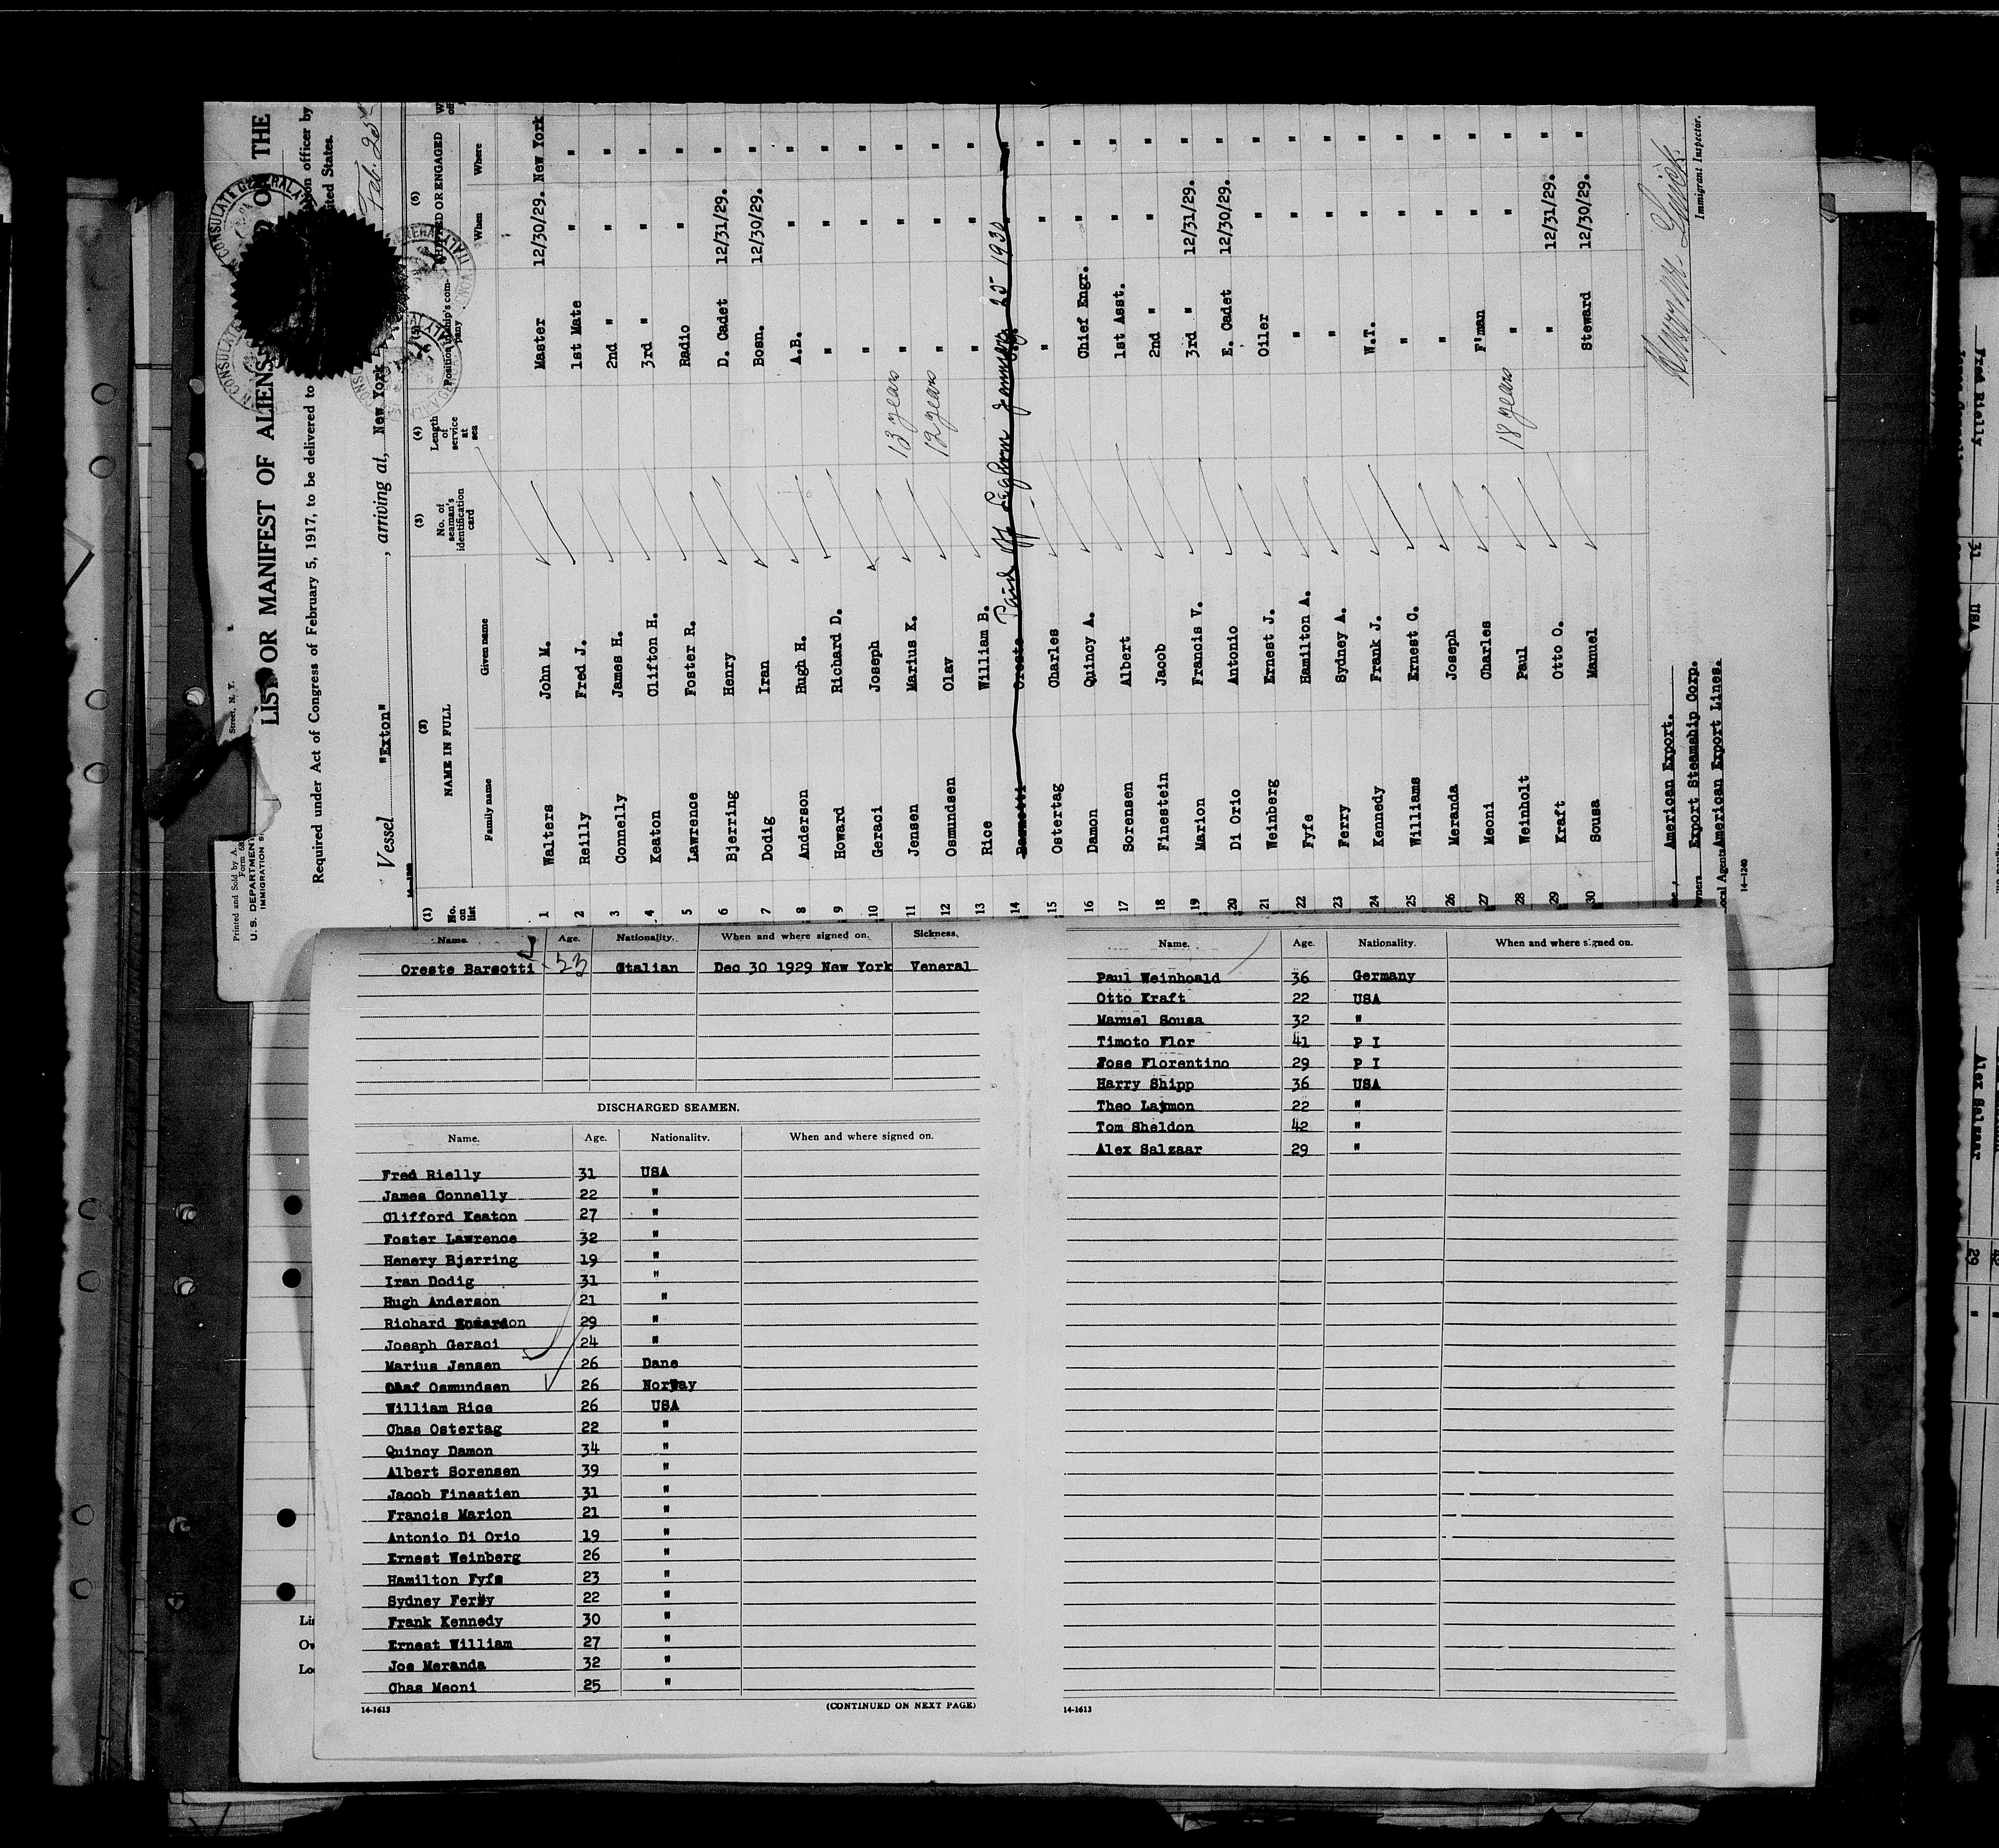 Printed and Sold by A.
Form 68
Street, N. Y.
U. S. DEPARTMENT
IMMIGRATION S
LIST OR MANIFEST OF ALIENS OR THE
Required under Act of Congress of February 5, 1917, to be delivered to officer by
ited States.
Vessel "Exton", arriving at, New York Feb. 25
(1) (2) (3) (4) (5) (6)
No. on list NAME IN FULL No. of seaman's identification card Length of service at sea Position in ship's company SHIPPED OR ENGAGED
Family name Given name When Where
1 Walters John M. Master 12/30/29. New York
2 Reilly Fred J. 1st Mate " "
3 Connelly James H. 2nd " " "
4 Keaton Clifton H. 3rd " " "
5 Lawrence Foster R. Radio " "
6 Bjerring Henry D. Cadet 12/31/29. "
7 Dodig Iran Bosn. 12/30/29. "
8 Anderson Hugh H. A.B. " "
9 Howard Richard D. " " "
10 Geraci Joseph " " "
11 Jensen Marius K. 13 years " " "
12 Osmundsen Olav 12 years " " "
13 Rice William B. " " "
14 Barsotti Oreste Paid off Leghorn January 25 1930 "
15 Ostertag Charles " " "
16 Damon Quincy A. Chief Engr. " "
17 Sorensen Albert 1st Asst. " "
18 Finestein Jacob 2nd " " "
19 Marion Francis V. 3rd " 12/31/29. "
20 Di Orio Antonio E. Cadet 12/30/29. "
21 Weinberg Ernest J. Oiler " "
22 Fyfe Hamilton A. " " "
23 Ferry Sydney A. " " "
24 Kennedy Frank J. W.T. " "
25 Williams Ernest C. " " "
26 Meranda Joseph " " "
27 Meoni Charles F'man " "
28 Weinholt Paul 18 years " " "
29 Kraft Otto O. " 12/31/29. "
30 Sousa Manuel Steward 12/30/29. "
American Export.
Export Steamship Corp.
ocal Agents American Export Lines.
14-1240
Immigrant Inspector.
Name. Age. Nationality. When and where signed on. Sickness.
Oreste Barsotti 53 Italian Dec 30 1929 New York Veneral
DISCHARGED SEAMEN.
Name. Age. Nationality. When and where signed on.
Fred Rielly 31 USA
James Connelly 22 "
Clifford Keaton 27 "
Foster Lawrence 32 "
Henery Bjerring 19 "
Iran Dodig 31 "
Hugh Anderson 21 "
Richard 29 "
Joesph Geraci 24 "
Marius Jensen 26 Dane
Olaf Osmundsen 26 Norway
William Rice 26 USA
Chas Ostertag 22 "
Quincy Damon 34 "
Albert Sorensen 39 "
Jacob Finestien 31 "
Francis Marion 21 "
Antonio Di Orio 19 "
Ernest Weinberg 26 "
Hamilton Fyfe 23 "
Sydney Ferry 22 "
Frank Kennedy 30 "
Ernest William 27 "
Joe Meranda 32 "
Chas Meoni 25 "
14-1613 (CONTINUED ON NEXT PAGE)
Name. Age. Nationality. When and where signed on.
Paul Weinhoald 36 Germany
Otto Kraft 22 USA
Manuel Sousa 32 "
Timoto Flor 41 P I
Jose Florentino 29 P I
Harry Shipp 36 USA
Theo Laymon 22 "
Tom Sheldon 42 "
Alex Salzaar 29 "
14-1613
Lis
Ow
Loc
Fred Rielly 31 USA
Alex Salzaar 29 "